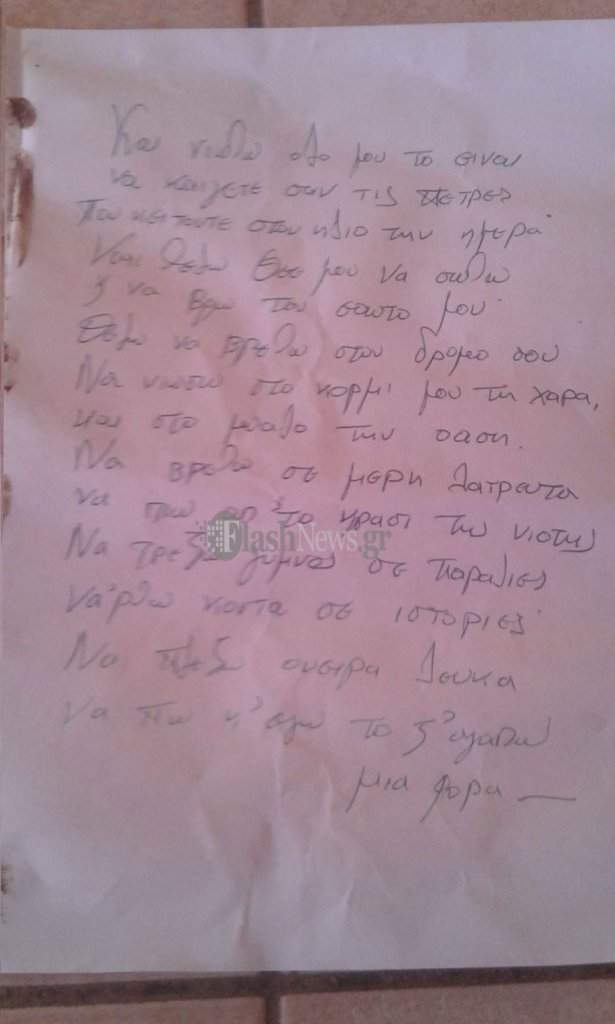 Και νιωθω ολο μου το ειναι
να καιγετε σαν τις πετρες
Που κειτονται στον ηλιο την ημερα
Κλαι θελω Θεε μου να σωθω
ς να βρω τον εαυτο μου
Θελω να βρεθω στον δρομο σου
Να νιωσω στο κορμι μου τη χαρα,
και στο μυαλο την οαση.
Να βρεθω σε μερη λατρευτα
να πιω απ' το κρασι της νιοτης
Να τρεξω γυμνος σε παραλιες
να'ρθω κοντα σε ιστοριες
Να πλεξω ονειρα λευκα
να πω κ' εγω το ς'αγαπω
μια φορα —
FlashNews.gr